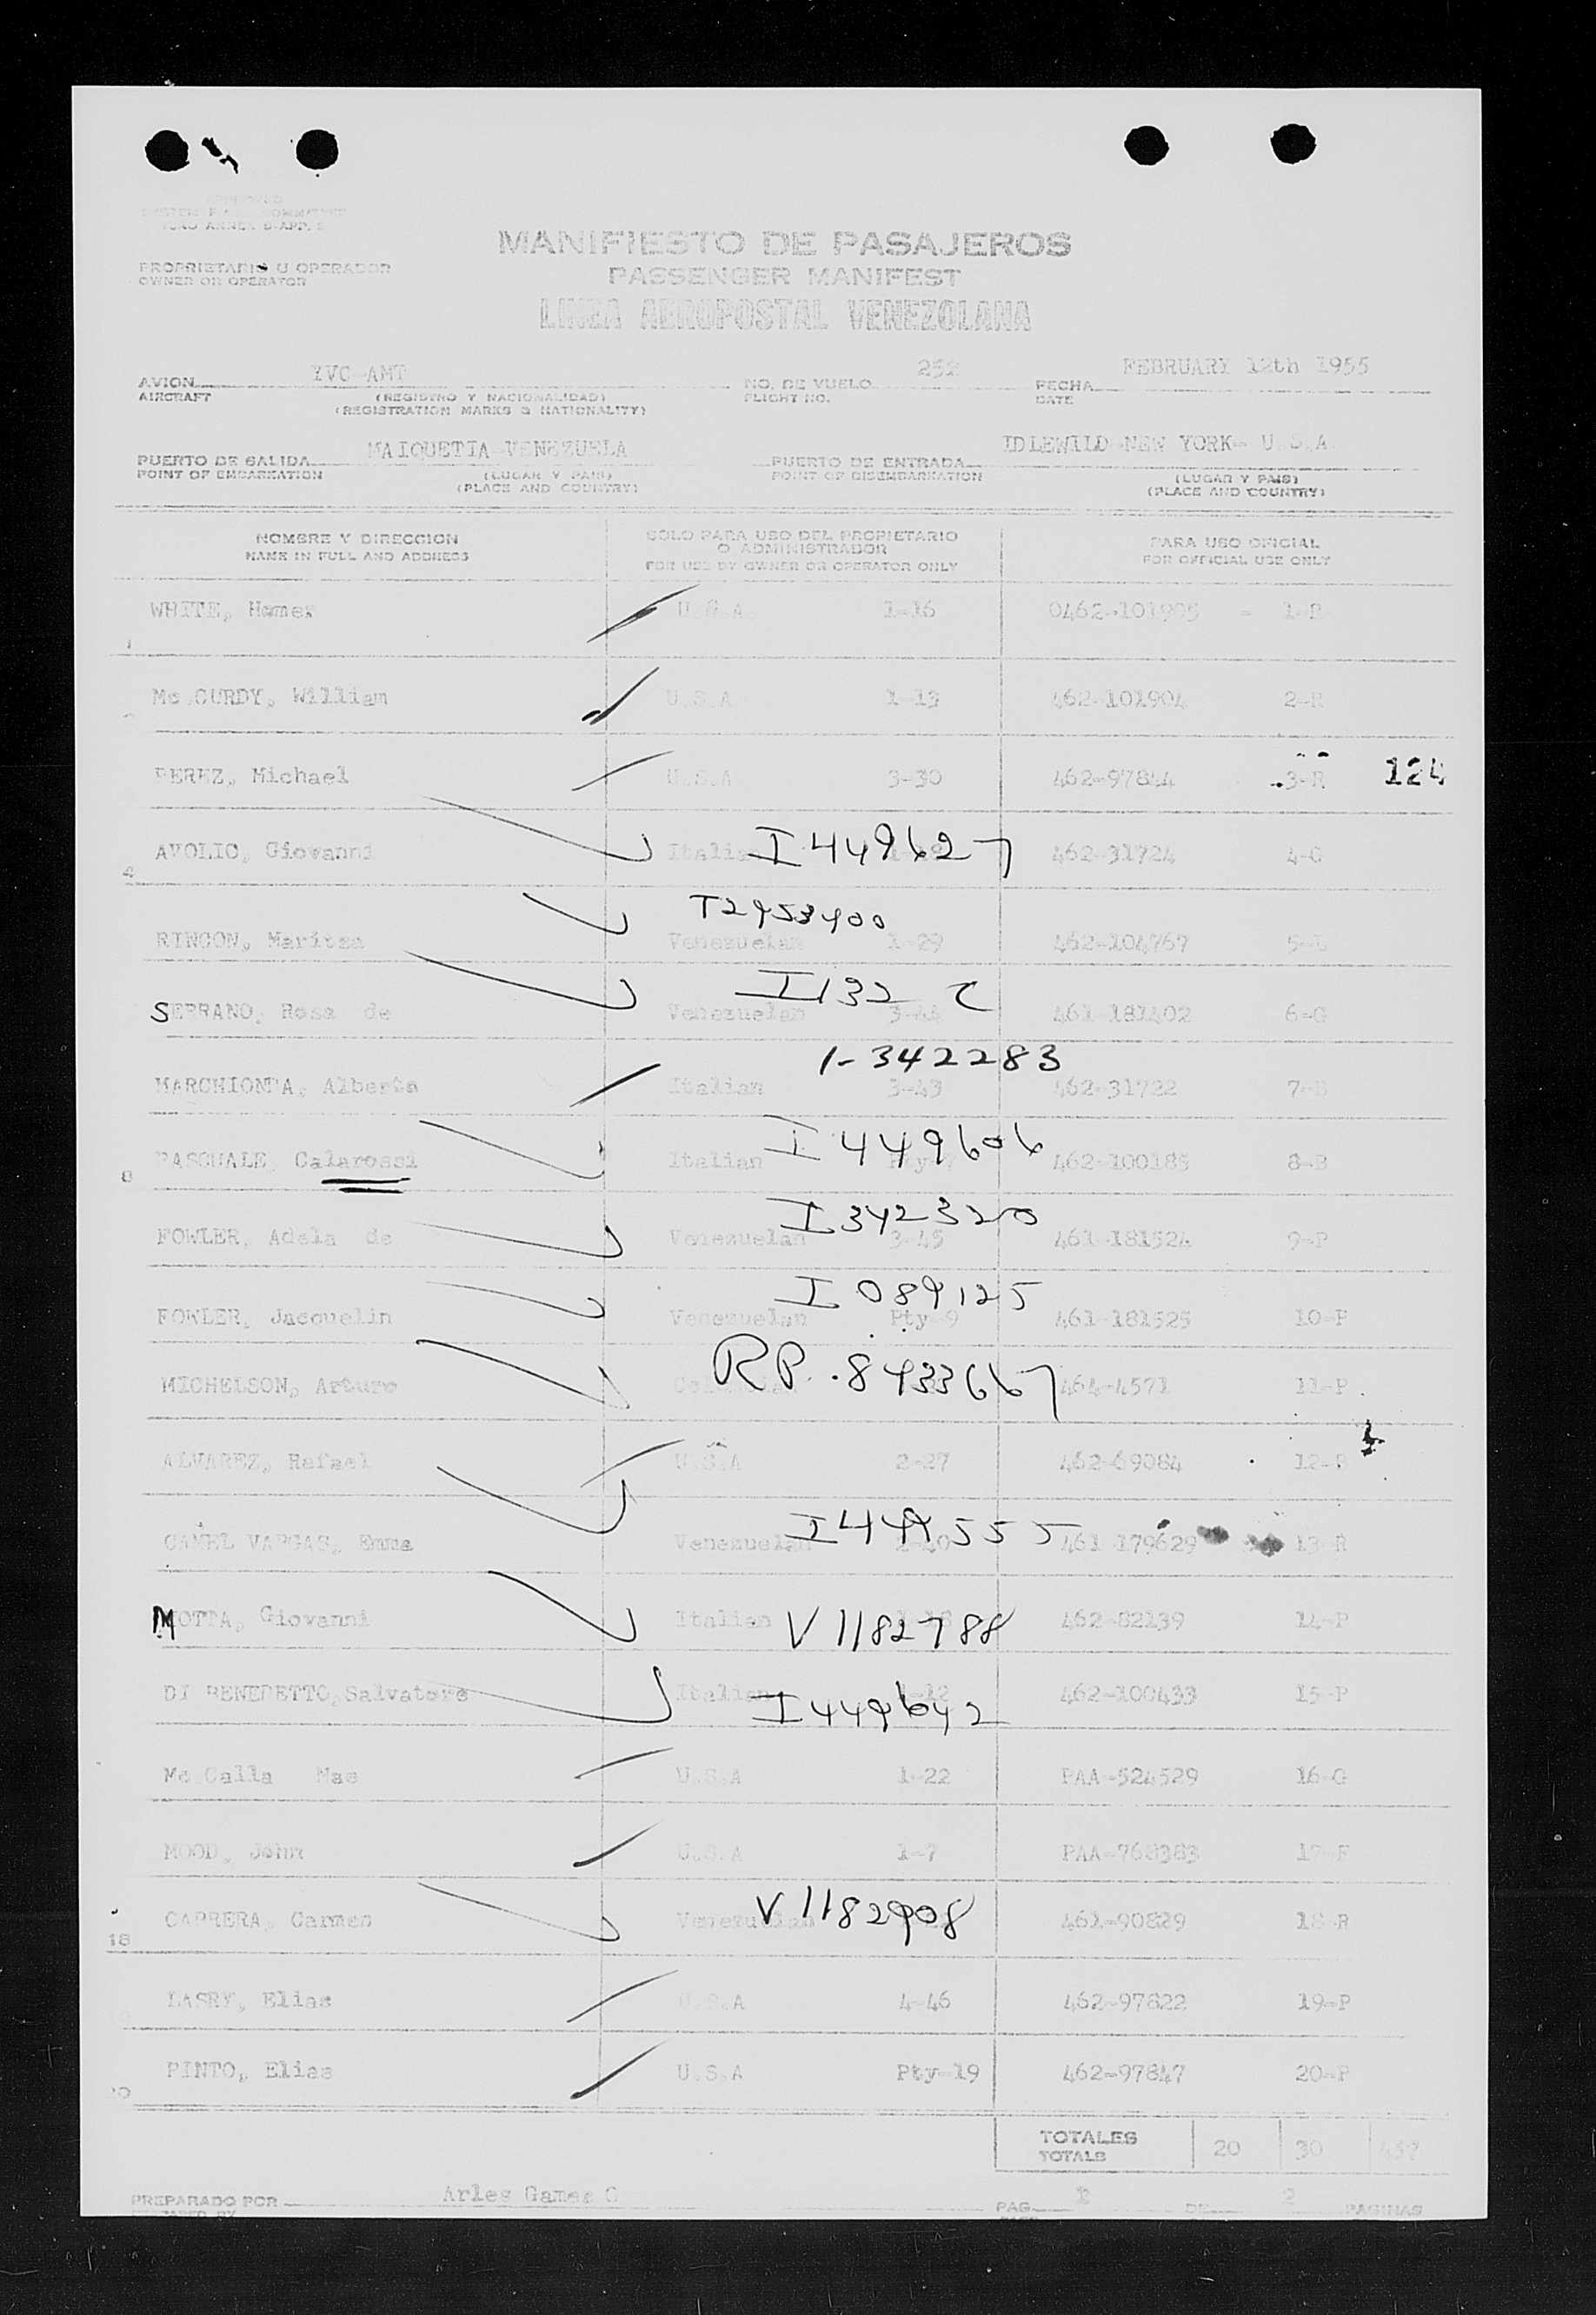 APPROVED
PROPRIETARIO U OPERADOR
OWNER OR OPERATOR
MANIFIESTO DE PASAJEROS
PASSENGER MANIFEST
LINEA AEROPOSTAL VENEZOLANA
AVION YVC-AMT NO. DE VUELO 252 FECHA FEBRUARY 12th 1955
AIRCRAFT (REGISTRO Y NACIONALIDAD) FLIGHT NO. DATE
(REGISTRATION MARKS & NATIONALITY)
PUERTO DE SALIDA MAIQUETIA VENEZUELA PUERTO DE ENTRADA IDLEWILD NEW YORK- U.S.A
POINT OF EMBARKATION (LUGAR Y PAIS) POINT OF DISEMBARKATION (LUGAR Y PAIS)
(PLACE AND COUNTRY) (PLACE AND COUNTRY)
NOMBRE Y DIRECCION SOLO PARA USO DEL PROPIETARIO PARA USO OFICIAL
O ADMINISTRADOR
NAME IN FULL AND ADDRESS FOR USE BY OWNER OR OPERATOR ONLY FOR OFFICIAL USE ONLY
WHITE, Homer U.S.A. 1-16 - 1-P
1
Mc CURDY, William U.S.A 1-13 462-101904 2-R
PEREZ, Michael U.S.A 3-30 462-97844 3-R 124
AVOLIO, Giovanni Italian I 449627 462-31724 4-G
4
T2953400
RINCON, Maritza Venezuelan 1-29 462-104767
I132 C
SERRANO, Rosa de Venezuelan 3-44 461-181402 6-G
1-342283
MARCHIONTA, Alberto Italian 3-43 462-31722
I 449606
PASCUALE, Calarossi Italian 462-100185 8-B
8
I 342320
FOWLER, Adela de Venezuelan 3-45 461-181524 9-P
I 089125
FOWLER, Jacquelin Venezuelan Pty-9 461-181525 10-P
RP. 8433667
MICHELSON, Arturo 464-4571 11-P
ALVAREZ, Rafael U.S.A 2-27 462-69084
I449555
CAMEL VARGAS, Emma Venezuelan 461-179629 13-R
MOTTA, Giovanni Italian V 1182788 462-82139 14-P
DI BENEDETTO, Salvatore Italian I449642 462-100433 15-P
Mc Calla Mae U.S.A 1-22 PAA-524529 16-G
MOOD, John U.S.A 1-7 PAA-768383
V 1182908
CABRERA, Carmen Venezuelan 461-90829 18-R
18
LASRY, Elias U.S.A 4-46 462-97822 19-P
PINTO, Elias U.S.A Pty-19 462-97847 20-P
20
TOTALES 20 30
TOTALS
PREPARADO POR Arles Games G PAG. 1 DE 2 PAGINAS